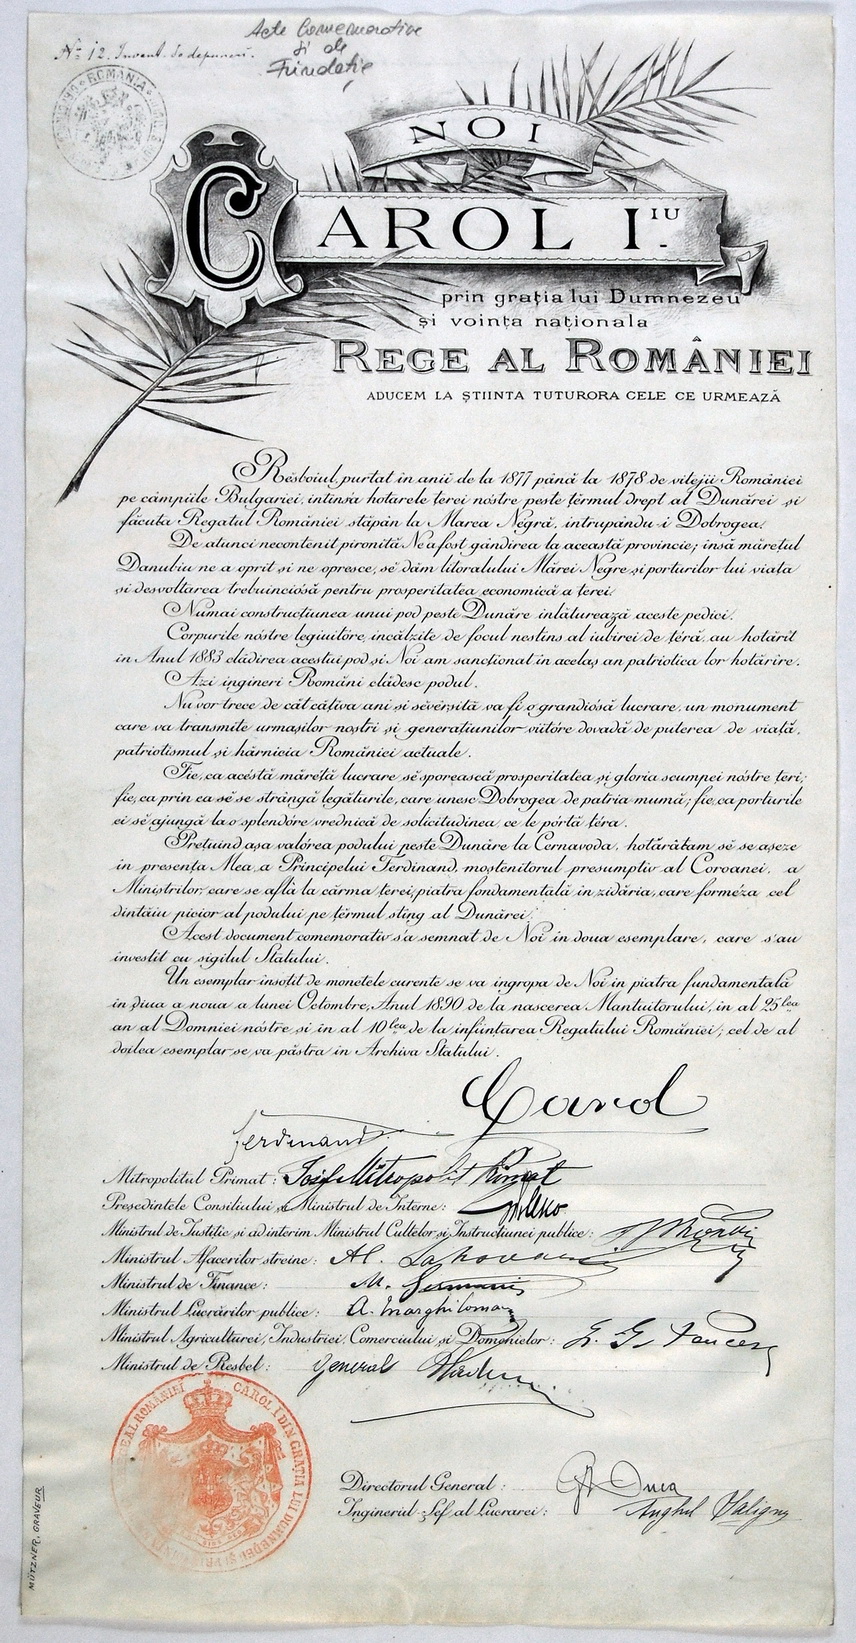 Acte Comemorative
și de
Fundație
No 12. Invent. de depuneri.
NOI
CAROL I.IU
prin grația lui Dumnezeu
și voința naționala
REGE AL ROMÂNIEI
ADUCEM LA ȘTIINTA TUTURORA CELE CE URMEAZĂ
Rĕsboiul purtat in anii de la 1877 până la 1878 de vitejii României
pe câmpiile Bulgariei, intinsa hotarele țerei nóstre peste țĕrmul drept al Dunărei și
făcuta Regatul României stăpân la Marea Negră, intrupându-i Dobrogea.
De atunci necontenit pironită Ne a fost gândirea la această provincie; insă mărețul
Danubiu ne a oprit si ne opresce, sĕ dăm litoralului Mărei Negre și porturilor lui viața
și desvoltarea trebuinciósă pentru prosperitatea economică a țerei.
Numai construcțiunea unui pod peste Dunăre inlăturează aceste pedici.
Corpurile nóstre legiuitóre, incălzite de focul nestins al iubirei de țéră, au hotărit
in Anul 1883 clădirea acestui pod și Noi am sancționat in acelaș an patriotica lor hotărire.
Azi ingineri Români clădesc podul.
Nu vor trece de cât câțiva ani și sevérșită va fi o grandiósă lucrare, un monument
care va transmite urmașilor noștri și generațiunilor viitóre dovadă de puterea de viață,
patriotismul și hărnicia României actuale.
Fie, ca acéstă măréță lucrare sĕ sporească prosperitatea și gloria scumpei nóstre țeri;
fie, ca prin ea sĕ se strângă legăturile, care unesc Dobrogea de patria mumă; fie, ca porturile
ei sĕ ajungă la o splendóre vrednică de solicitudinea, ce le pórtă țéra.
Prețuind așa valórea podului peste Dunăre la Cernavoda, hotărâtam sĕ se așeze
in presența Mea, a Principelui Ferdinand, moștenitorul presumptiv al Coroanei, a
Miniștrilor, care se află la cârma țerei, piatra fondamentală in zidăria, care forméza cel
dintăiu picior al podului pe țĕrmul sting al Dunărei.
Acest document comemorativ s'a semnat de Noi in doua esemplare, care s'au
investit cu sigilul Statului.
Un esemplar insotit de monetele curente se va ingropa de Noi in piatra fundamentală
in diua a noua a lunei Octombre, Anul 1890 de la nascerea Mantuitorului, in al 25lea
an al Domniei nóstre și in al 10lea de la infiintarea Regatului României; cel de al
doilea esemplar se va păstra in Archiva Statului.
Carol
Ferdinand
Mitropolitul Primat: Iosif Mitropolit Primat
Preșcdintele Consiliului și Ministrul de Interne:
Ministrul de Justiție și ad interim Ministrul Cultelor și Instrucțiunei publice:
Ministrul Afacerilor streine: Al. Lahovari
Ministrul de Finance: M. Germani
Ministrul Lucrărilor publice: A. Marghiloman
Ministrul Agriculturei, Industriei, Comerciului și Domenielor:
Ministrul de Resbel: General Vladescu
Directorul General: Duca
Inginerul Șef al Lucrarei: Anghel Saligny
CAROL I DIN GRAȚIA LUI DUMNEDEU ȘI
MÜTZNER, GRAVEUR